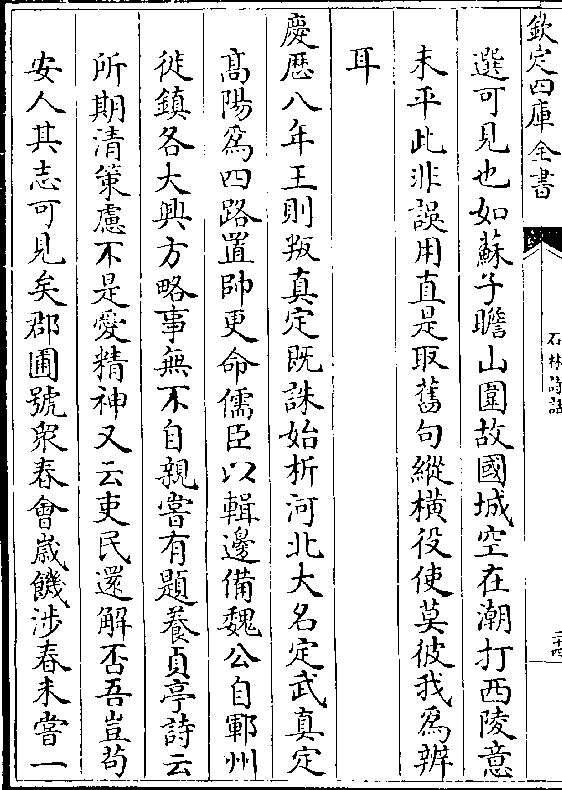 欽定四庫全書
石林詩話
二十四
選可見也如蘇子瞻山圍故國城空在潮打西陵意
未平此非誤用直是取舊句縱橫役使莫彼我為辨
耳
慶厯八年王則叛真定既誅始析河北大名定武真定
髙陽為四路置帥更命儒臣以輯邊備魏公自鄆州
徙鎮各大興方略事無不自親嘗有題養真亭詩云
所期清策慮不是愛精神又云吏民還解否吾豈苟
安人其志可見矣郡圃號衆春會嵗饑涉春未嘗一